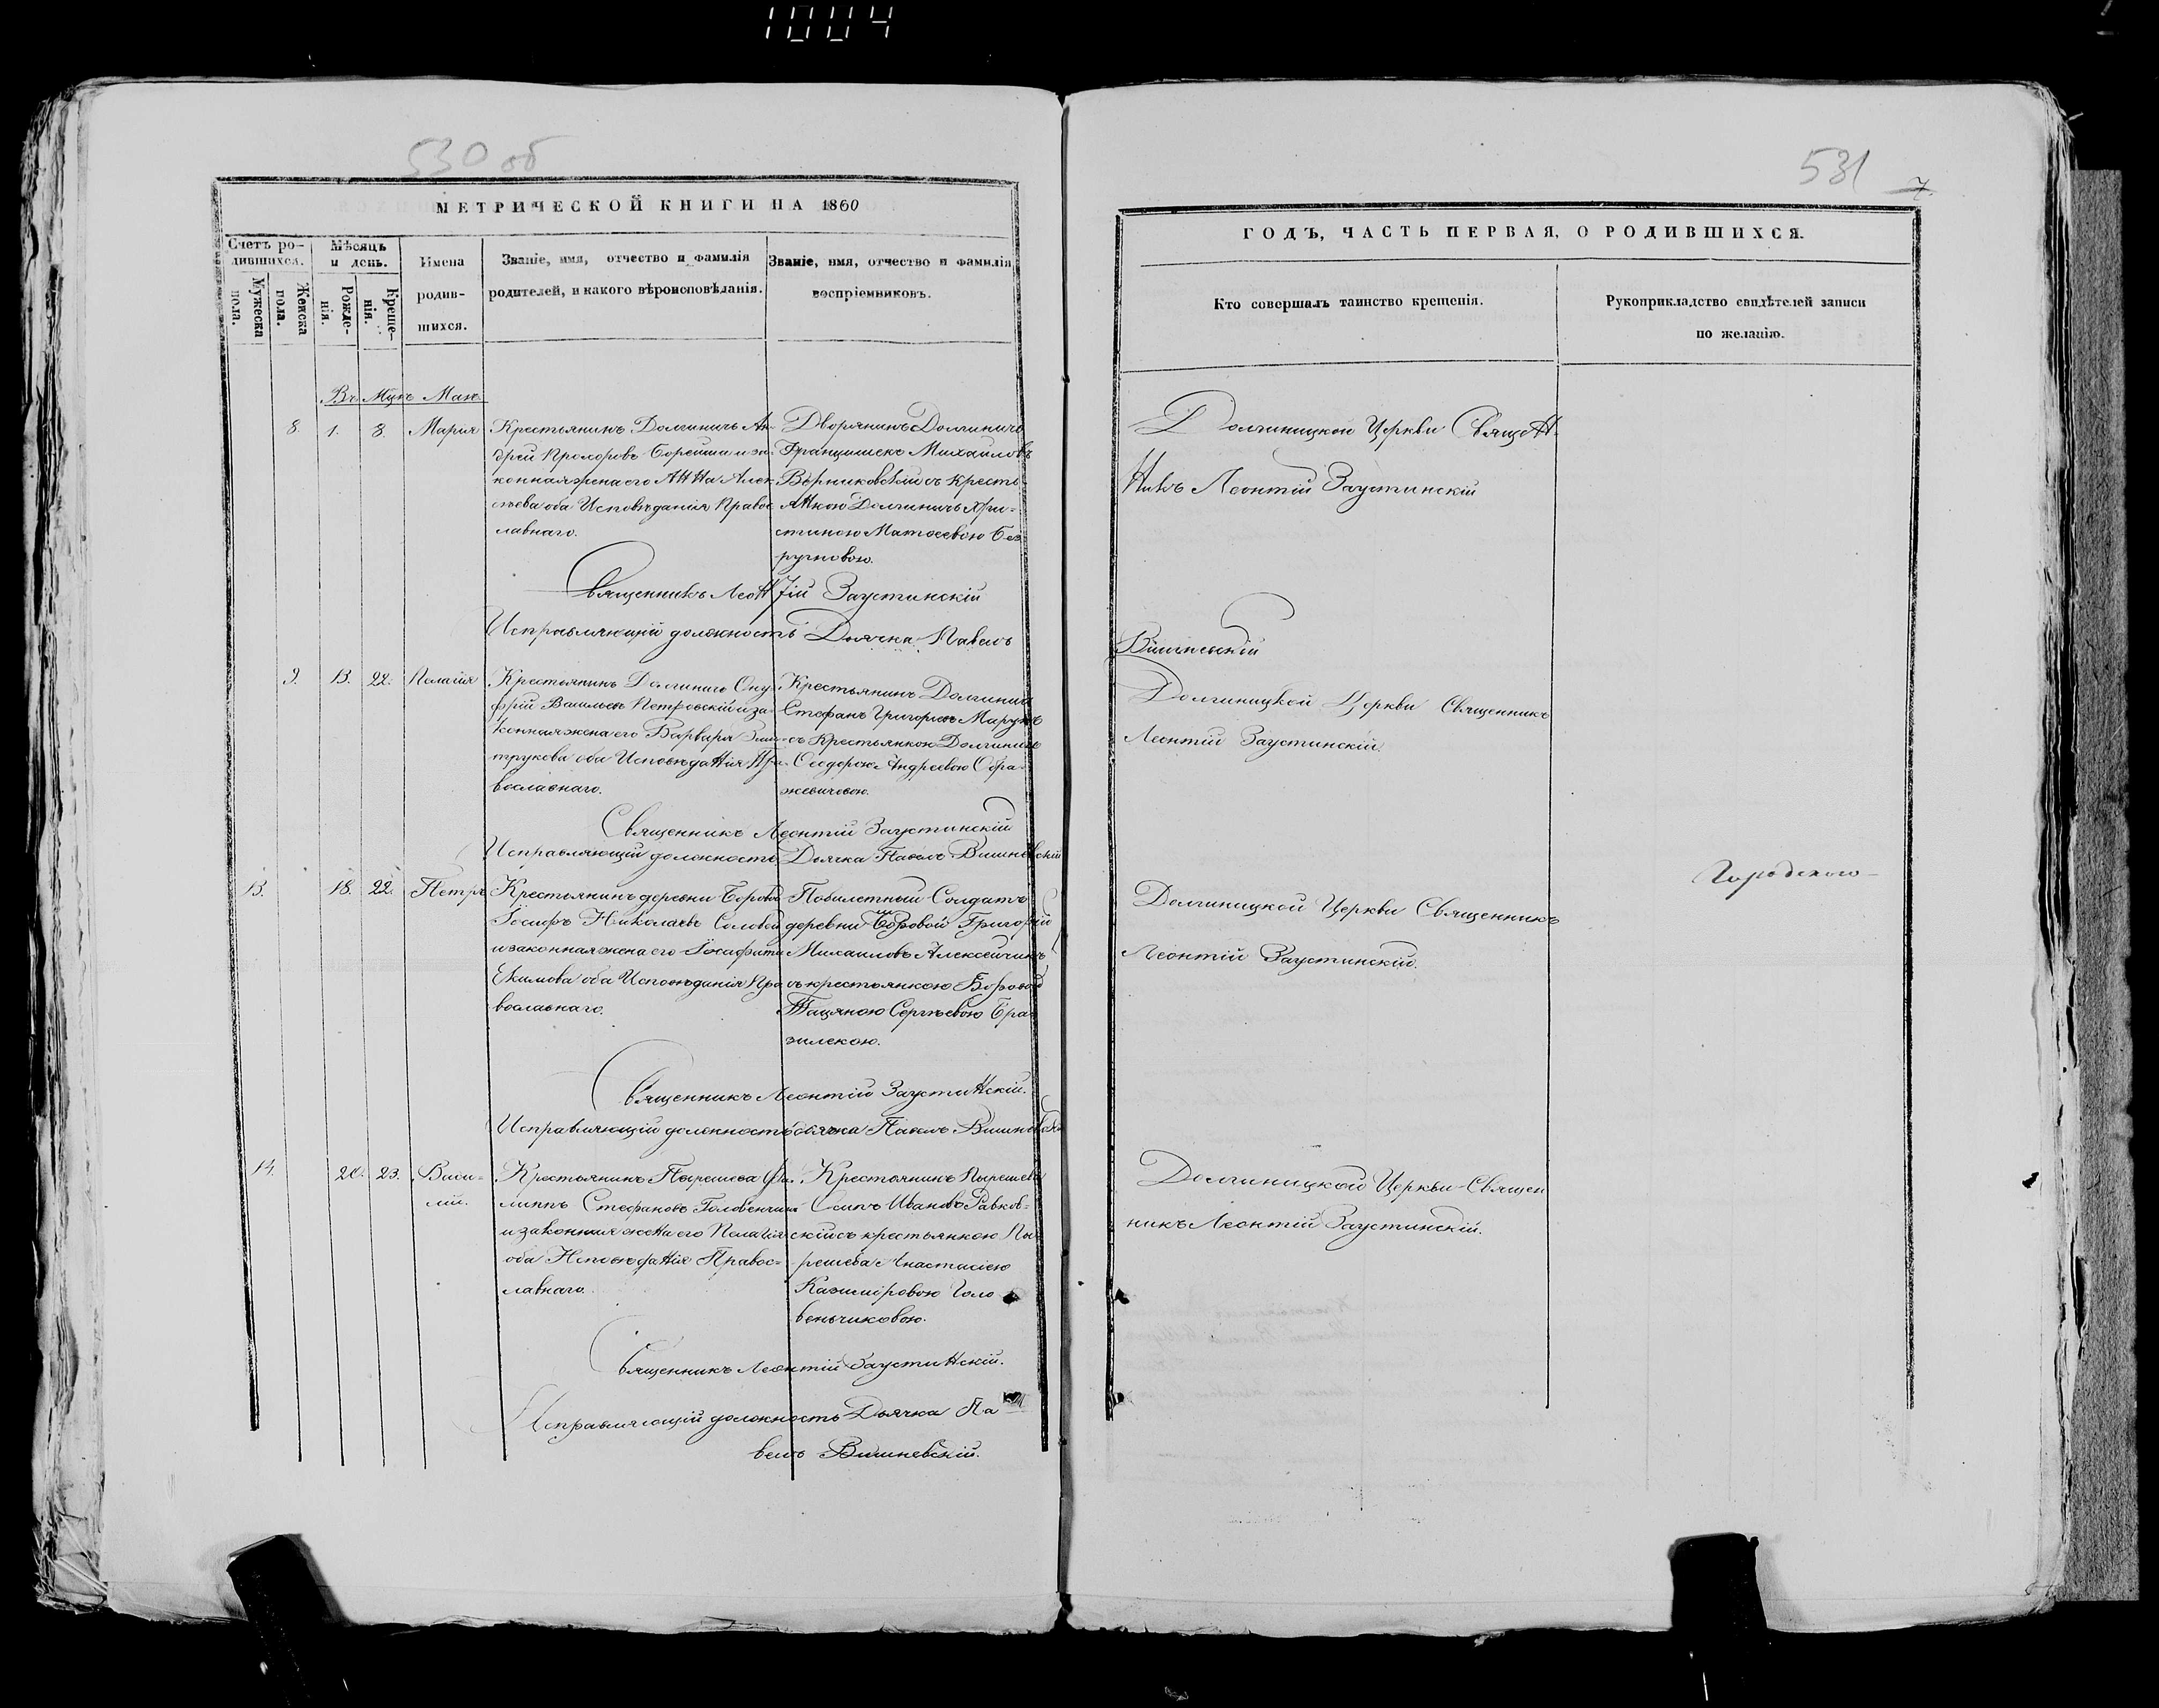 1004
530 об
МЕТРИЧЕСКОЙ КНИГИ НА 1860
Счетъ ро-
дившихся.
Мужеска
пола.
Женска
пола.
Мѣсяцъ
и день.
Рожде-
нія.
Креще-
нія.
Имена
родив-
шихся.
Званіе, имя, отчество и фамилія
родителей, и какого вѣроисповѣданія.
Званіе, имя, отчество и фамилія
воспріемниковъ.
8. 1. 8. Марія
Крестьянинъ Долгиничъ Ан-
дрей Прохоровъ Борейша и за-
конная жена его Анна Алек-
сѣева оба Исповѣданія Правос
лавнаго.
Дворянинъ Долгиничъ
Францишекъ Михаиловъ
Верниковскій съ кресть
янкою Долгиничъ Хри-
стиною Матѳеевою Без
ручковою.
Священникъ Леонтій Заустинскій
Исправляющій должность Дьячка Павелъ
9. 13. 22. Пелагія
Крестьянинъ Долгиничъ Ону-
фрій Васильевъ Петровскій и за-
конная жена его Варвара
трукова оба Исповѣданія Пра-
вославнаго.
Крестьянинъ Долгинич
Стефанъ Григорьевъ
съ Крестьянкою Долгиничъ
Ѳеодорою Андреевою Обра-
жевичовою.
Священникъ Леонтій Заустинскій
Исправляющій должность Дьячка Павелъ Вишневскій
13. 18. 22. Петръ
Крестьянинъ деревни Борово
Іосифъ Николаевъ Соловей
и законная жена его Іосафата
Екимова оба Исповѣданія Пра
вославнаго.
Побилетный Солдатъ
деревни Боровой Григорій
Михаиловъ Алексейчикъ
съ крестьянкою Боровой
Тацяною Сергѣевою Бра
зилекою.
Священникъ Леонтій Заустинскій.
Исправляющій должность дьячка Павелъ Вишневскій
14. 20. 23. Васи-
лій.
Крестьянинъ Пырешева Фи-
липпъ Стефановъ Головенчикъ
и законная жена его Пелагія
оба Исповѣданія Правос-
лавнаго.
Крестьянинъ Пырешева
Осипъ Ивановъ Равков-
скій съ крестьянкою Пы
решева Анастасіею
Казиміровою Голо
веньчиковою.
Священникъ Леонтій Заустинскій.
Исправляющій должность Дьячка Па
велъ Вишневскій.
531
7.
ГОДЪ, ЧАСТЬ ПЕРВАЯ, О РОДИВШИХСЯ.
Кто совершалъ таинство крещенія.
Рукоприкладство свидѣтелей записи
по желанію.
Долгиницкой Церкви Священ-
никъ Леонтій Заустинскій
Вишневскій
Долгиницкой Церкви Священникъ
Леонтій Заустинскій
Городскаго
Долгиницкой Церкви Священникъ
Леонтій Заустинскій.
Долгиницкой Церкви Священ
никъ Леонтій Заустинскій.